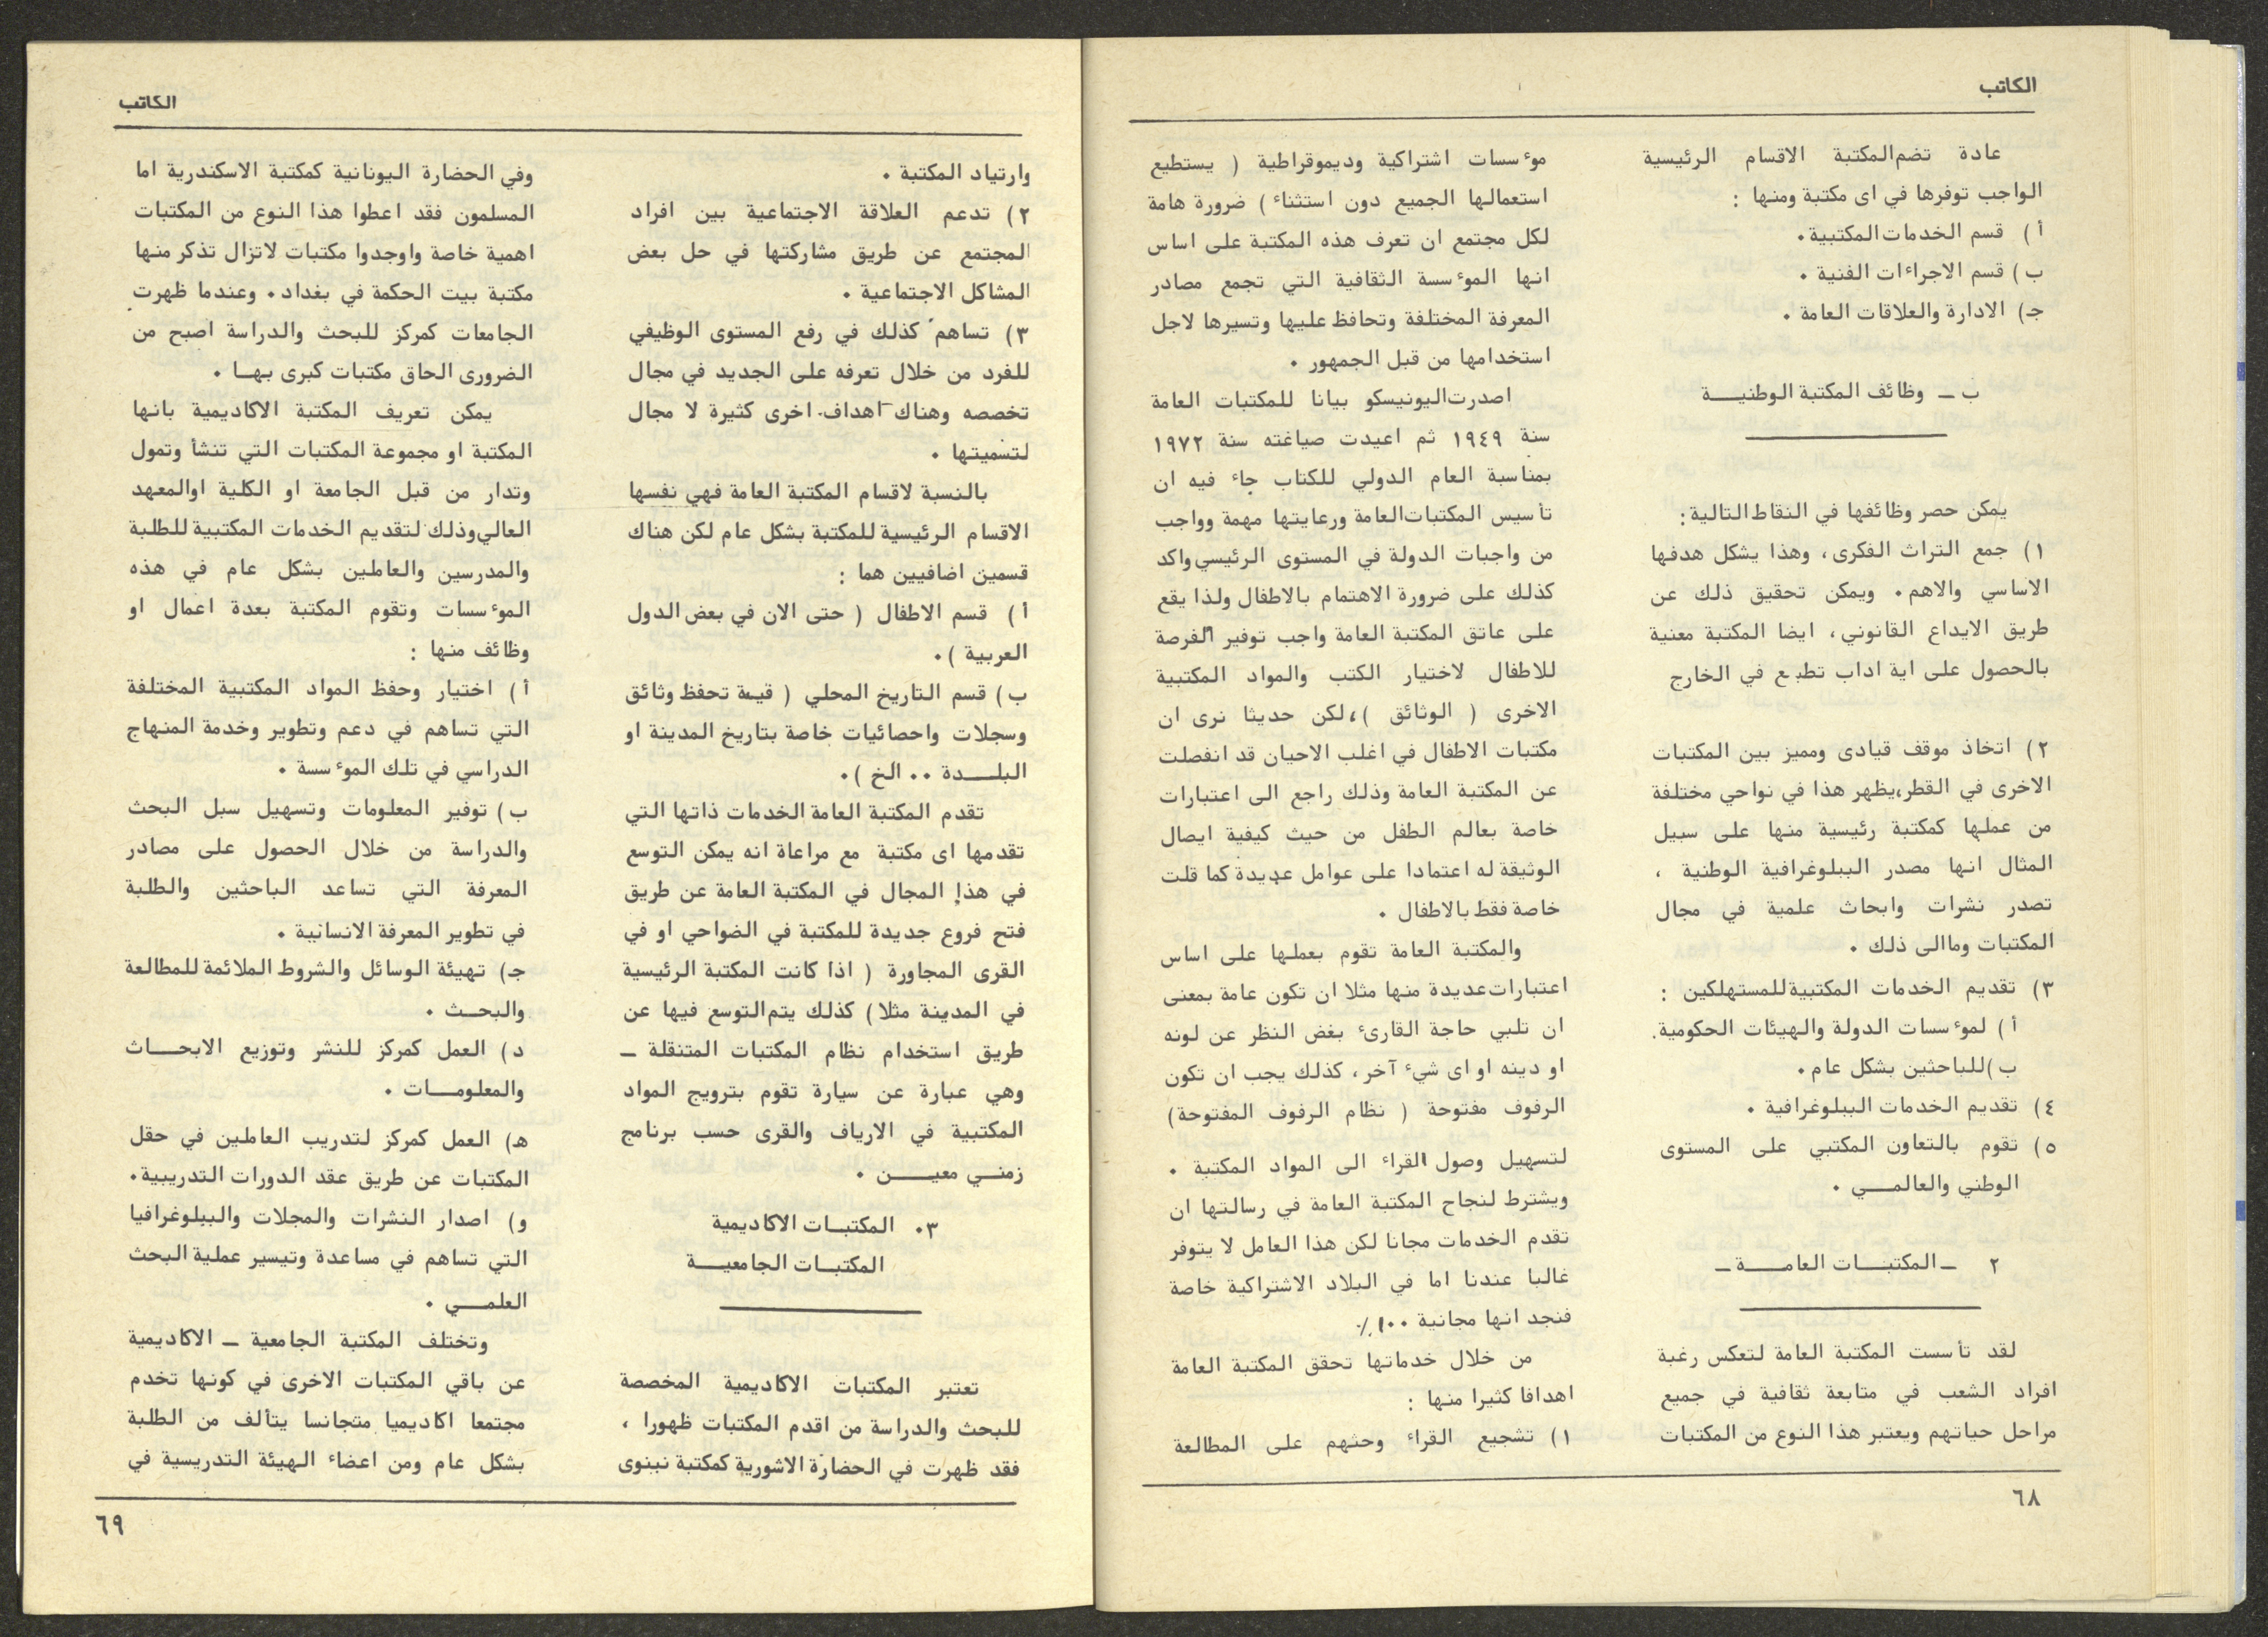 الكاتب
عادة تضم المكتبة الاقسام الرئيسية
الواجب توفرها في اى مكتبة ومنها :
أ ) قسم الخدمات المكتبية .
ب ) قسم الاجراءات الفنية .
جـ) الادارة والعلاقات العامة .
ب ـ وظائف المكتبة الوطنيـــة
يمكن حصر وظائفها في النقاط التالية :
١ ) جمع التراث الفكرى ، وهذا يشكل هدفها
الاساسي والاهم . ويمكن تحقيق ذلك عن
طريق الايداع القانوني ، ايضا المكتبة معنية
بالحصول على اية اداب تطبع في الخارج
٢ ) اتخاذ موقف قيادى ومميز بين المكتبات
الاخرى في القطر، يظهر هذا في نواحي مختلفة
من عملها كمكتبة رئيسية منها على سبيل
المثال انها مصدر الببلوغرافية الوطنية ،
تصدر نشرات وابحاث علمية في مجال
المكتبات وماالى ذلك .
٣ ) تقديم الخدمات المكتبية للمستهلكين :
أ ) لموءسسات الدولة والهيئات الحكومية .
ب )للباحثين بشكل عام .
٤ ) تقديم الخدمات الببلوغرافية .
٥ ) تقوم بالتعاون المكتبي على المستوى
الوطني والعالمـــي .
٢ ـ المكتبـــات العامـــة ـ
لقد تأسست المكتبة العامة لتعكس رغبة
افراد الشعب في متابعة ثقافية في جميع
مراحل حياتهم ويعتبر هذا النوع من المكتبات
موءسسات اشتراكية وديموقراطية ( يستطيع
استعمالها الجميع دون استثناء ) ضرورة هامة
لكل مجتمع ان تعرف هذه المكتبة على اساس
انها الموءسسة الثقافية التي تجمع مصادر
المعرفة المختلفة وتحافظ عليها وتسيرها لاجل
استخدامها من قبل الجمهور .
اصدرت اليونيسكو بيانا للمكتبات العامة
سنة ١٩٤٩ ثم اعيدت صياغته سنة ١٩٧٢
بمناسبة العام الدولي للكتاب جاء فيه ان
تأسيس المكتبات العامة ورعايتها مهمة وواجب
من واجبات الدولة في المستوى الرئيسي واكد
كذلك على ضرورة الاهتمام بالاطفال ولذا يقع
على عاتق المكتبة العامة واجب توفير الفرصة
للاطفال لاختيار الكتب والمواد المكتبية
الاخرى ( الوثائق )، لكن حديثا نرى ان
مكتبات الاطفال في اغلب الاحيان قد انفصلت
عن المكتبة العامة وذلك راجع الى اعتبارات
خاصة بعالم الطفل من حيث كيفية ايصال
الوثيقة له اعتمادا على عوامل عديدة كما قلت
خاصة فقط بالاطفال .
والمكتبة العامة تقوم بعملها على اساس
اعتبارات عديدة منها مثلا ان تكون عامة بمعنى
ان تلبي حاجة القارىء بغض النظر عن لونه
او دينه او اى شيء آخر ، كذلك يجب ان تكون
الرفوف مفتوحة ( نظام الرفوف المفتوحة )
لتسهيل وصول القراء الى المواد المكتبة .
ويشترط لنجاح المكتبة العامة في رسالتها ان
تقدم الخدمات مجانا لكن هذا العامل لا يتوفر
غالبا عندنا اما في البلاد الاشتراكية خاصة
فنجد انها مجانية ١٠٠٪
من خلال خدماتها تحقق المكتبة العامة
اهدافا كثيرا منها :
١ ) تشجيع القراء وحثهم على المطالعة
٦٨
الكاتب
وارتياد المكتبة .
٢ ) تدعم العلاقة الاجتماعية بين افراد
المجتمع عن طريق مشاركتها في حل بعض
المشاكل الاجتماعية .
٣ ) تساهم كذلك في رفع المستوى الوظيفي
للفرد من خلال تعرفه على الجديد في مجال
تخصصه وهناك اهداف اخرى كثيرة لا مجال
لتسميتها .
بالنسبة لاقسام المكتبة العامة فهي نفسها
الاقسام الرئيسية للمكتبة بشكل عام لكن هناك
قسمين اضافيين هما :
أ ) قسم الاطفال ( حتى الان في بعض الدول
العربية ) .
ب ) قسم التاريخ المحلي ( قيمة تحفظ وثائق
وسجلات واحصائيات خاصة بتاريخ المدينة او
البلـــدة .. الخ ) .
تقدم المكتبة العامة الخدمات ذاتها التي
تقدمها اى مكتبة مع مراعاة انه يمكن التوسع
في هذا المجال في المكتبة العامة عن طريق
فتح فروع جديدة للمكتبة في الضواحي او في
القرى المجاورة ( اذا كانت المكتبة الرئيسية
في المدينة مثلا ) كذلك يتم التوسع فيها عن
طريق استخدام نظام المكتبات المتنقلة ـ
وهي عبارة عن سيارة تقوم بترويج المواد
المكتبية في الارياف والقرى حسب برنامج
زمنـــي معيـــــن .
٣. المكتبــات الاكاديمية
المكتبــات الجامعيـــة
تعتبر المكتبات الاكاديمية المخصصة
للبحث والدراسة من اقدم المكتبات ظهورا ،
فقد ظهرت في الحضارة الاشورية كمكتبة نينوى
وفي الحضارة اليونانية كمكتبة الاسكندرية اما
المسلمون فقد اعطوا هذا النوع من المكتبات
اهمية خاصة واوجدوا مكتبات لاتزال تذكر منها
مكتبة بيت الحكمة في بغداد . وعندما ظهرت
الجامعات كمركز للبحث والدراسة اصبح من
الضرورى الحاق مكتبات كبرى بهــا .
يمكن تعريف المكتبة الاكاديمية بانها
المكتبة او مجموعة المكتبات التي تنشأ وتمول
وتدار من قبل الجامعة او الكلية اوالمعهد
العالي وذلك لتقديم الخدمات المكتبية للطلبة
والمدرسين والعاملين بشكل عام في هذه
الموءسسات وتقوم المكتبة بعدة اعمال او
وظائف منها :
أ ) اختيار وحفظ المواد المكتبية المختلفة
التي تساهم في دعم وتطوير وخدمة المنهاج
الدراسي في تلك الموءسسة .
ب ) توفير المعلومات وتسهيل سبل البحث
والدراسة من خلال الحصول على مصادر
المعرفة التي تساعد الباحثين والطلبة
في تطوير المعرفة الانسانية .
جـ) تهيئة الوسائل والشروط الملائمة للمطالعة
والبحــث .
د ) العمل كمركز للنشر وتوزيع الابحـــاث
والمعلومـــات .
هـ) العمل كمركز لتدريب العاملين في حقل
المكتبات عن طريق عقد الدورات التدريبية .
و) اصدار النشرات والمجلات والببلوغرافيا
التي تساهم في مساعدة وتيسير عملية البحث
العلمـــي .
وتختلف المكتبة الجامعية ـ الاكاديمية
عن باقي المكتبات الاخرى في كونها تخدم
مجتمعا اكاديميا متجانسا يتألف من الطلبة
بشكل عام ومن اعضاء الهيئة التدريسية في
٦٩